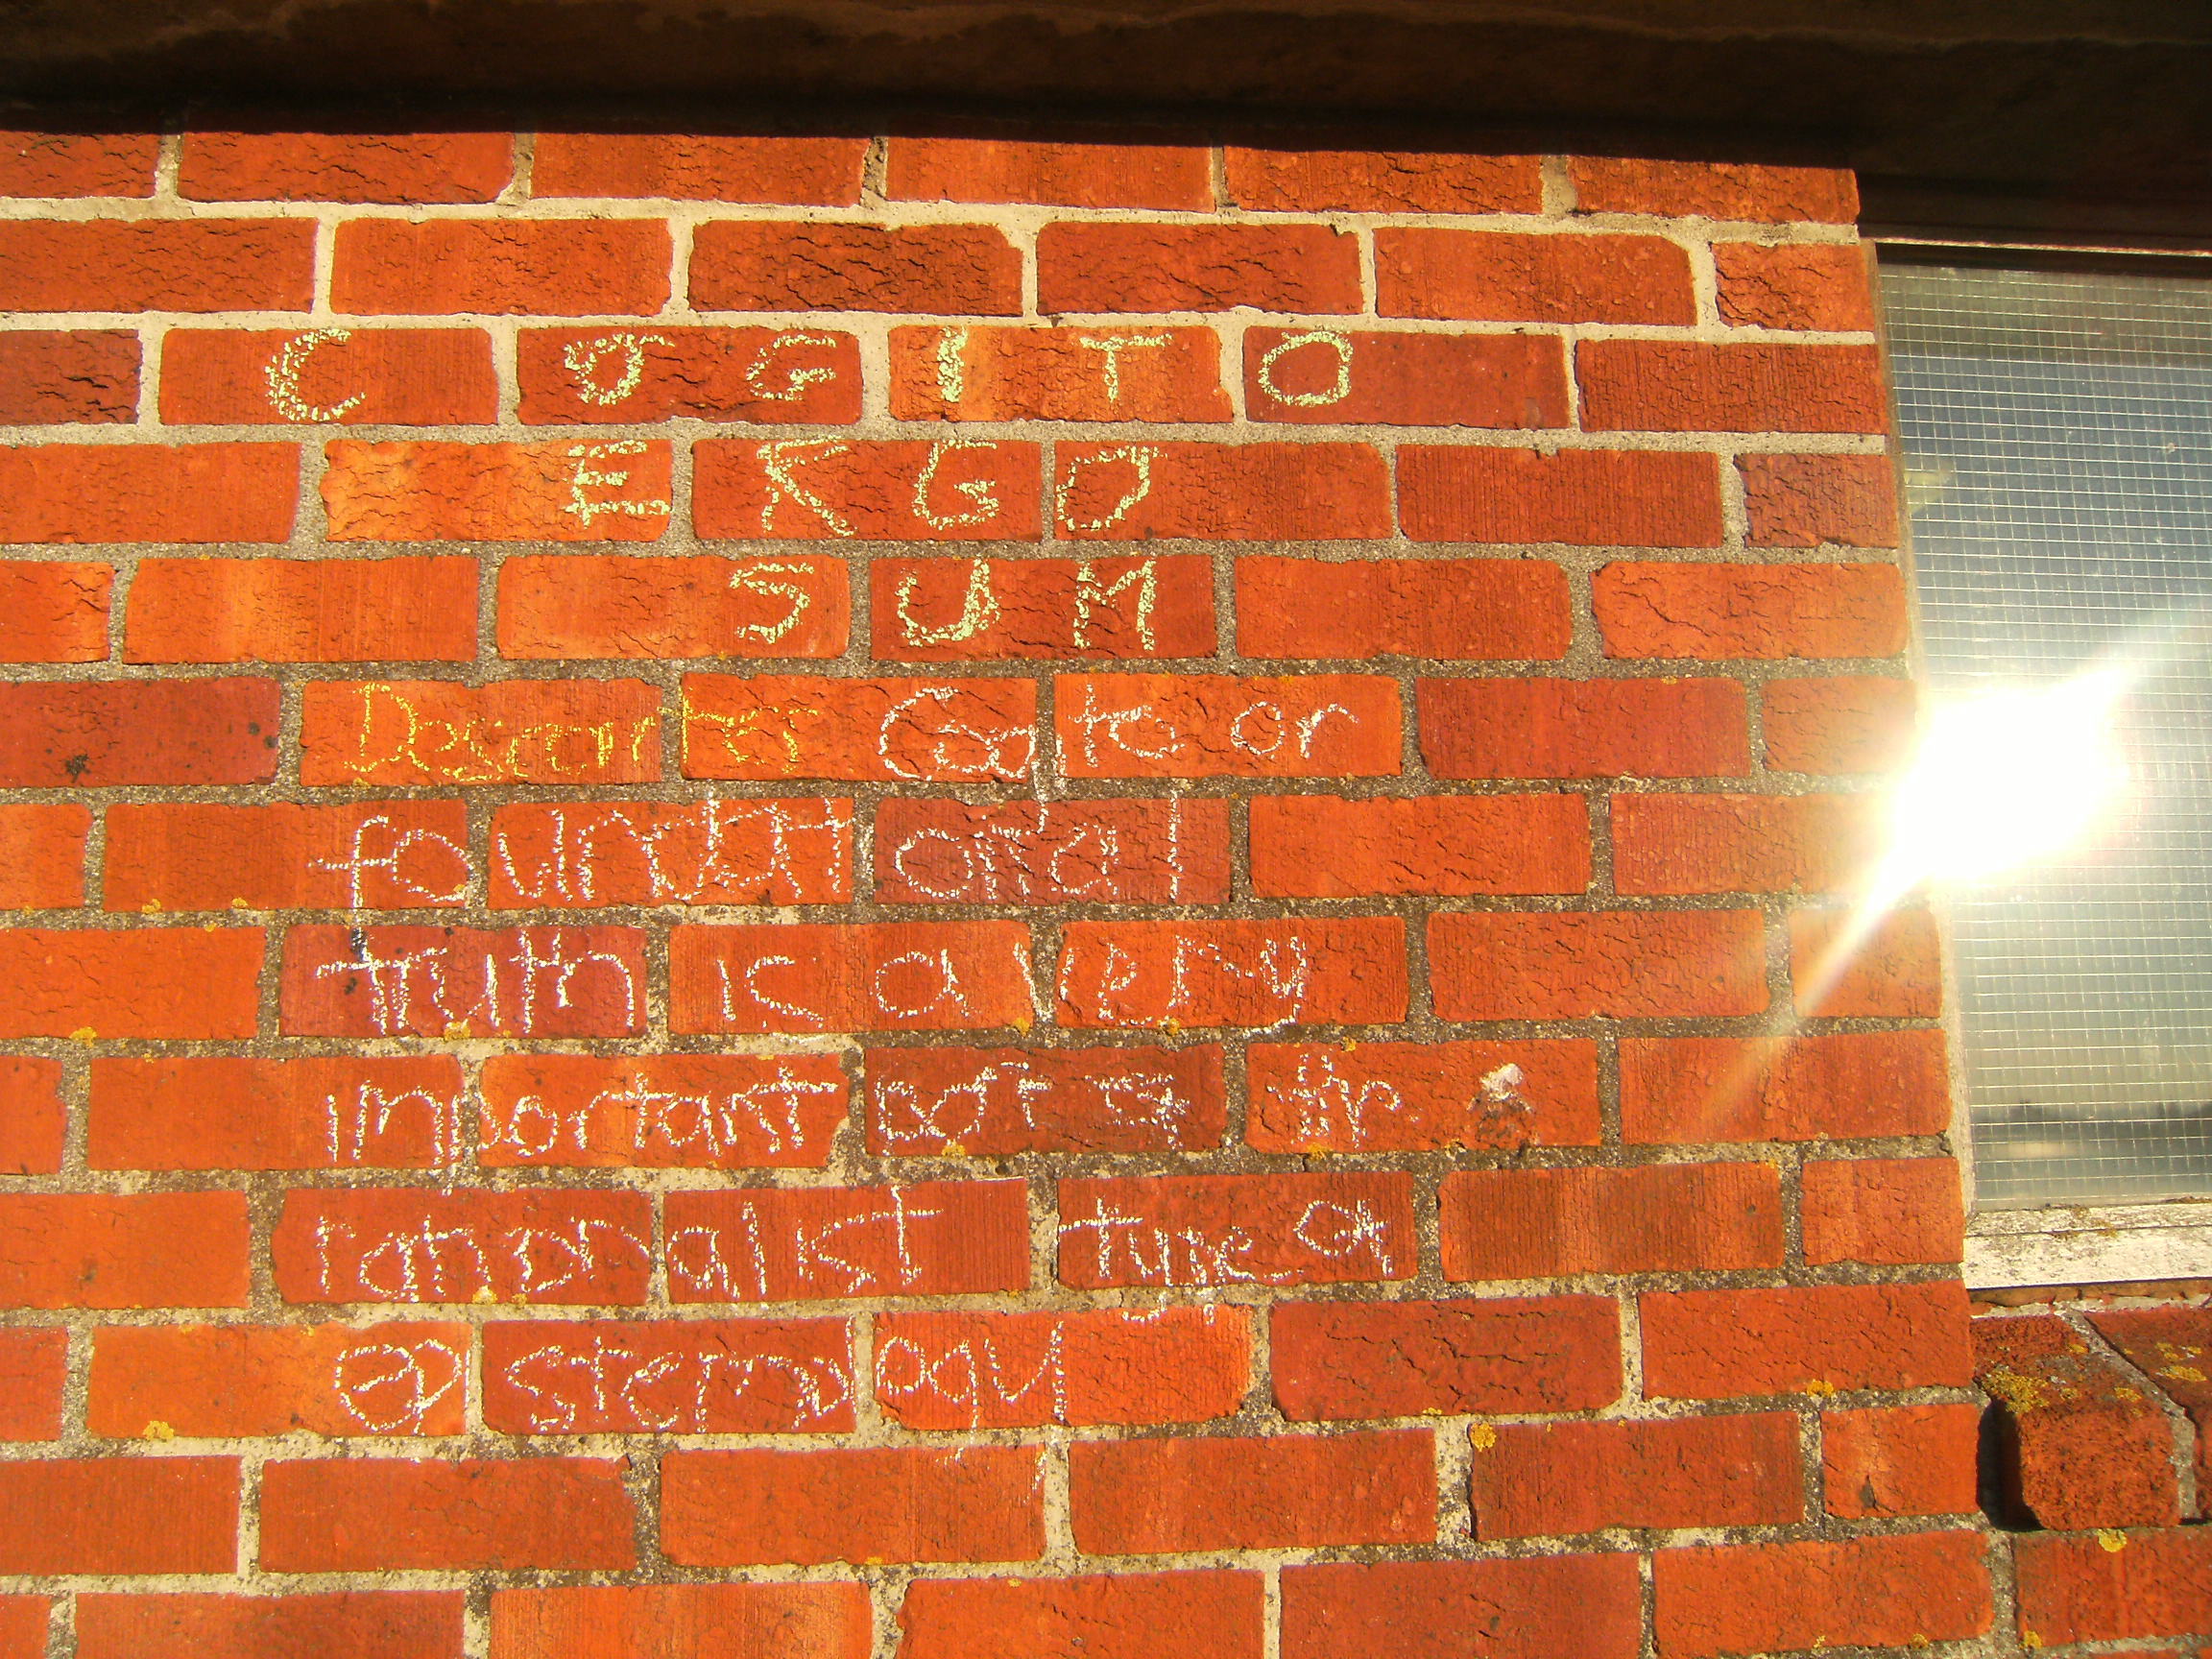 COGITO
ERGO
SUM
Descartes Cogito or
foundational
truth is a very
important part of the
rationalist type of
epistemology